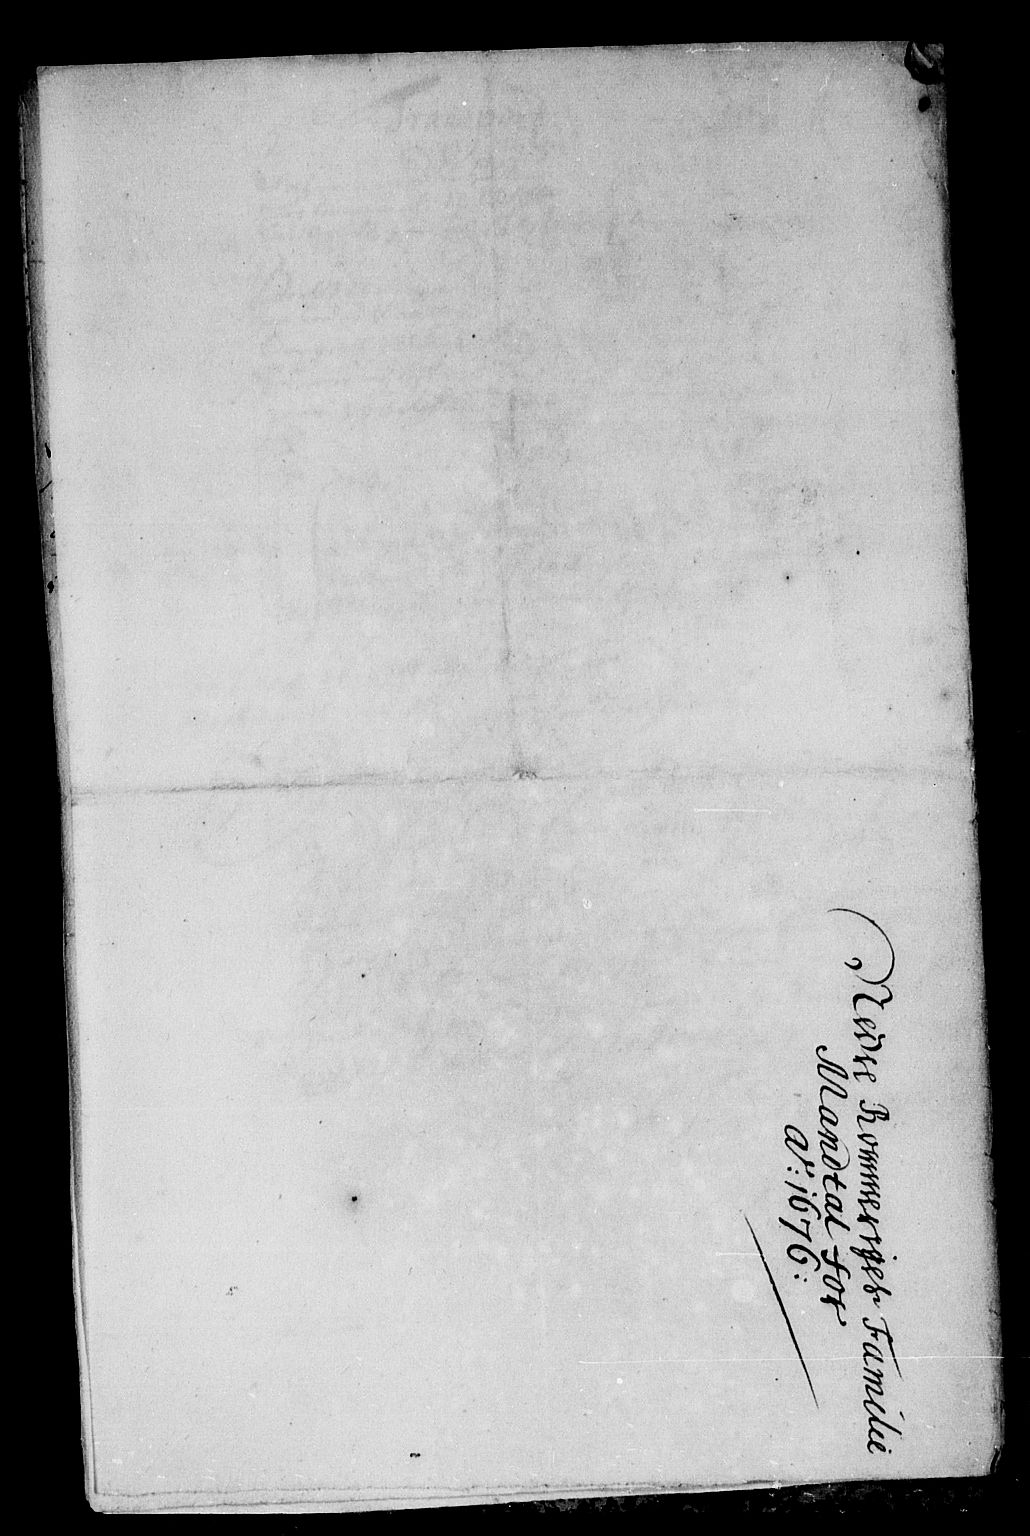 Nedre Rommeriges Familie
Mandtal for
Ao: 1676: